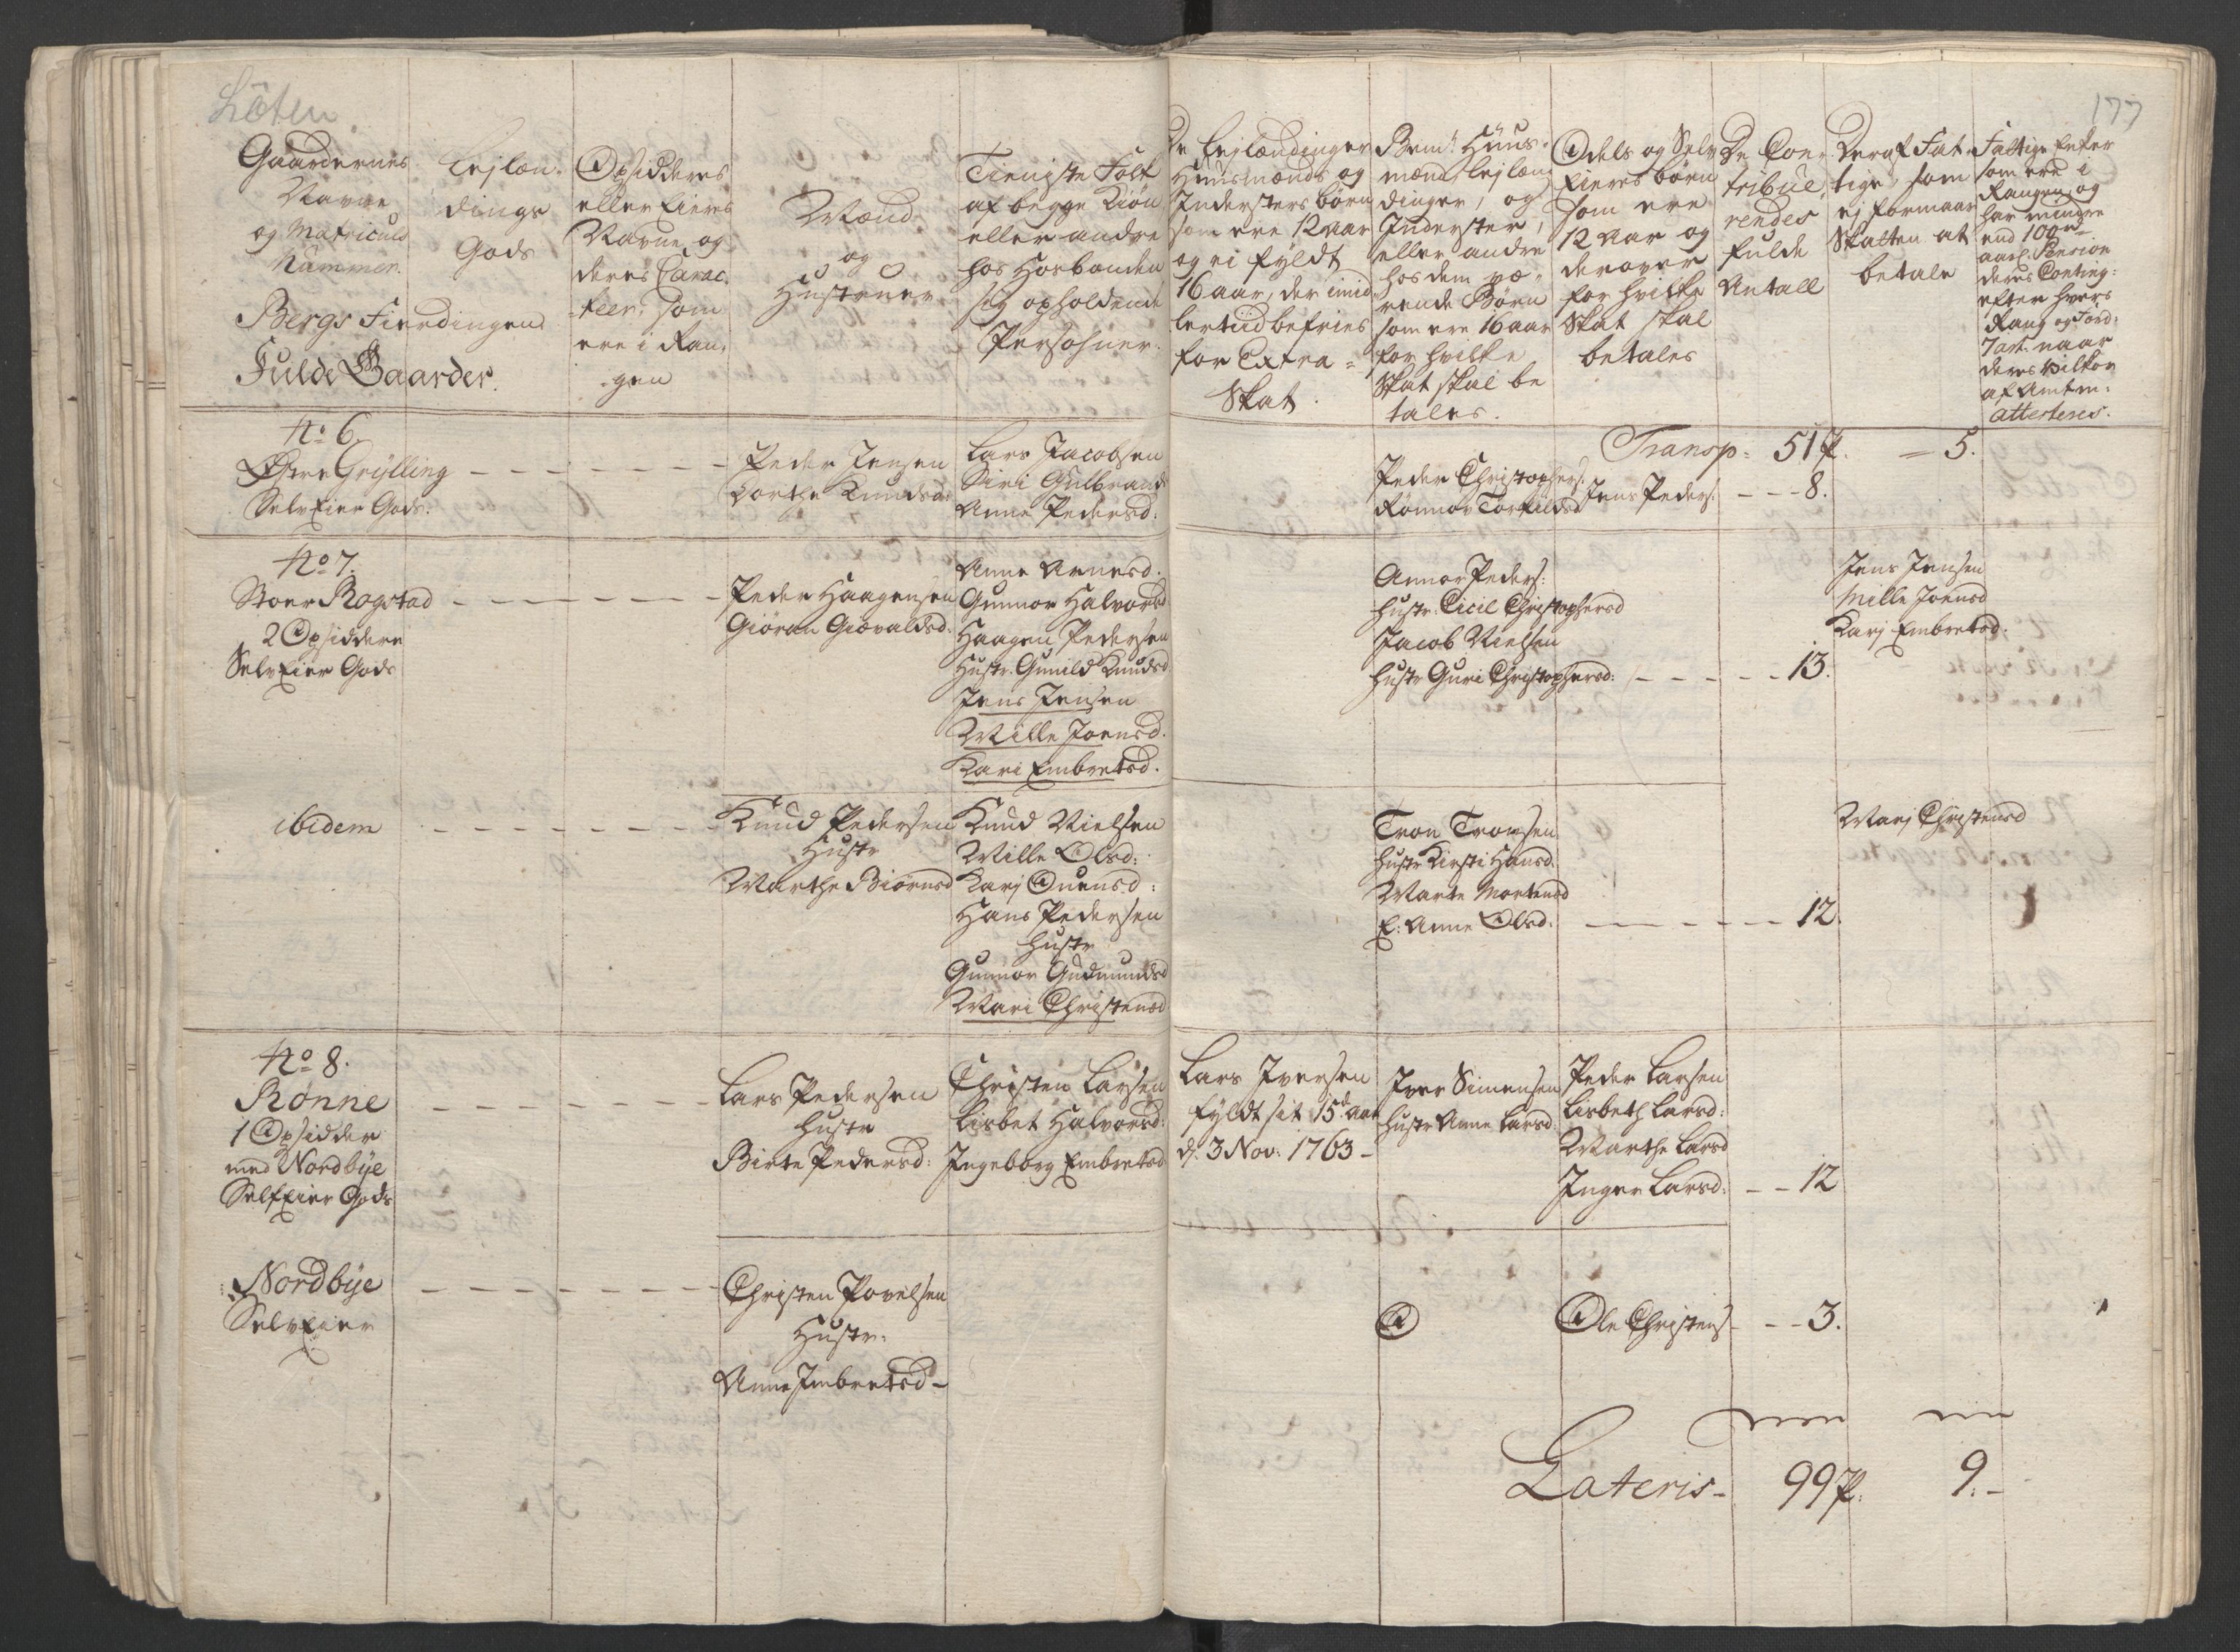 Løten
177
Gaardernes
Navne
og Matriculs
Nummer.
Bergs Fierdingen
Fulde Gaarder.
Lejlæn-
dings
Gods
Opsidderes
eller Eieres
Navne og
deres Carac-
teer, som
ere i Ran-
gen
Mænd
og
Hustruer
Tieniste Folk
af begge Kiøn
eller andre
hos Hosbonden
sig opholdende
Persohner.
De Lejlændinger
Huusmænds og
Indersters børn
som ere 12 aar
og ei fyldt
16 aar, der imid-
lertiid befries
for Extra =
Skat.
Bemt. Huus-
mænd, lejlæn
dinger, og
Inderster,
eller andre
hos dem væ-
rende Børn
som ere 16 aar
for hvilke
Skat skal be
tales.
Odels og Selv
Eieres børn
som ere
12 aar og
derover
for hvilke
Skat skal
betales
De Con-
tribue-
rendes
fulde
Antall
Deraf Fat-
tige, som
ej formaar
Skatten at
betale
Fattige Enker
som ere i
Rangen og
har mindre
end 100 rd
aarl: Pension
deres Conting:
efter hvers
Rang og Ford:
7 art. naar
deres Vilkor
af Amtm:
attesteres.
Transp: 51 P. = 5.
No 6.
Østre Grylling
SelvEier Gods.
Peder Jensen
Dorthe Knudsd:
Lars Jacobsen
Siri Gulbrands
Anne Pedersd:
Peder Christophers.
Rønnov Torkildsd
Jens Peders: - - - 8.
No 7.
Stoer Rogstad
2 Opsiddere
SelvEier Gods
Peder Haagensen
Giøran Giævaldsd.
Anne Arnesd.
Gunnor Halvorsd
Haagen Pedersen
Hustr. Gunild Knudsd
Jens Jensen
Mille Joensd.
Kari Embretsd.
Annor Peders:
hustr. Cicil Christophersd
Jacob Nielsen
hustr Guri Christophersd: - - - - - 13.
Jens Jensen
Mille Joensd
Karj Embretsd.
ibidem
Knud Pedersen
Hustr
Marthe Biørnsd
Knud Nielsen
Mille Olsd:
Karj Ouensd:
Hans Pedersen
hustr
Gunnor Gudmundsd
Mari Christensd
Tron Tronsen
hustr Kirsti Hansd.
Marte Mortensd
E: Anne Olsd. - - - - - 12.
Marj Christensd
No 8.
Rønne
1 Opsidder
med Nordbye
SelfEier Gods
Lars Pedersen
hustr
Birte Pedersd:
Christen Larsen
Lisbet Halvorsd:
Ingeborg Embretsd
Lars Iversen
fyldt sit 15de aar
d. 3 Nov: 1763 -
Iver Simensen
hustr Anne Larsd:
Peder Larsen
Lisbeth Larsd:
Marthe Larsd
Inger Larsd: - - 12
Nordbye
SelvEier
Christen Povelsen
Hustr:
Anne Imbretsd -
Ole Christens - - - 3.
Lateris - 99 P: 9. -